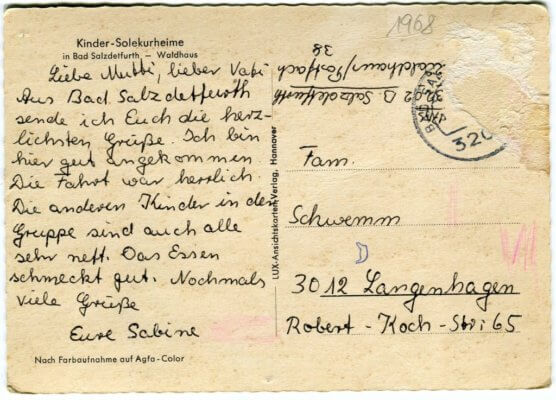 Kinder-Solekurheime
in Bad Salzdetfurth – Waldhaus
Liebe Mutti, lieber Vati
Aus Bad Salzdetfurth
sende ich Euch die herz-
lichsten Grüße. Ich bin
hier gut angekommen
Die Fahrt war herrlich
Die anderen Kinder in der
Gruppe sind auch alle
sehr nett. Das Essen
schmeckt gut. Nochmals
viele Grüße
Eure Sabine
Nach Farbaufnahme auf Agfa-Color
LUX-Ansichtskarten-Verlag, Hannover
1968
Salzdetfurth
Waldhaus/Postfach
38
320
Fam.
Schwemm
3012 Langenhagen
Robert-Koch-Str: 65
VII